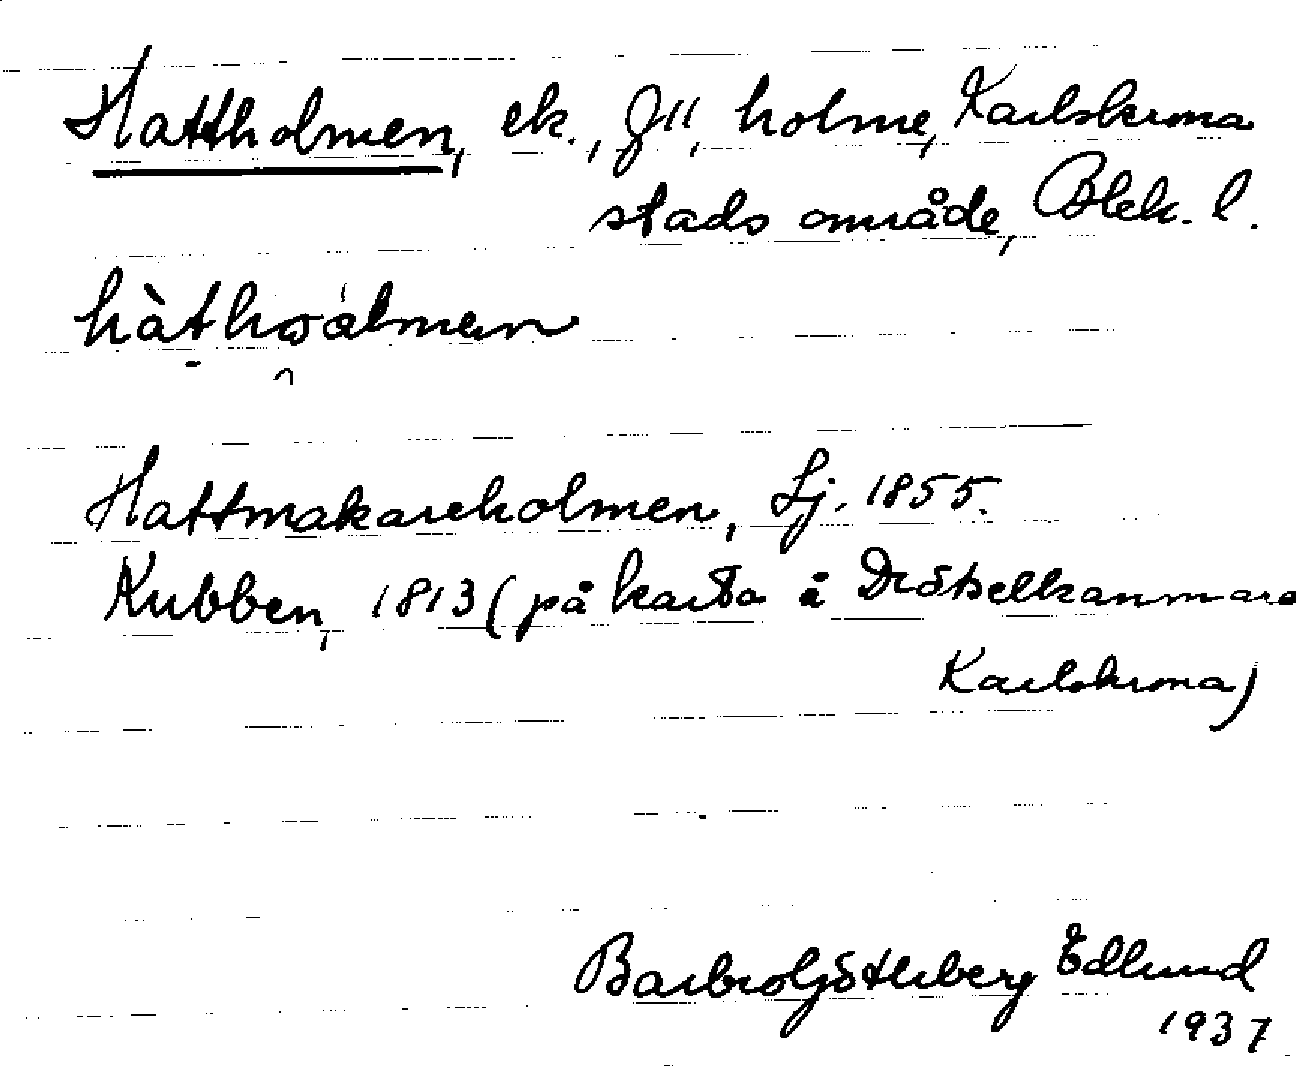 Hattholmen, ek., J11, holme, Karlskrona
stads område, Blek. l.
hàthωálmən
Hattmakareholmen, Lj. 1855.
Kubben, 1813 (på karta å Drätselkammare
Karlskrona)
Barbro Götherberg Edlund
1937